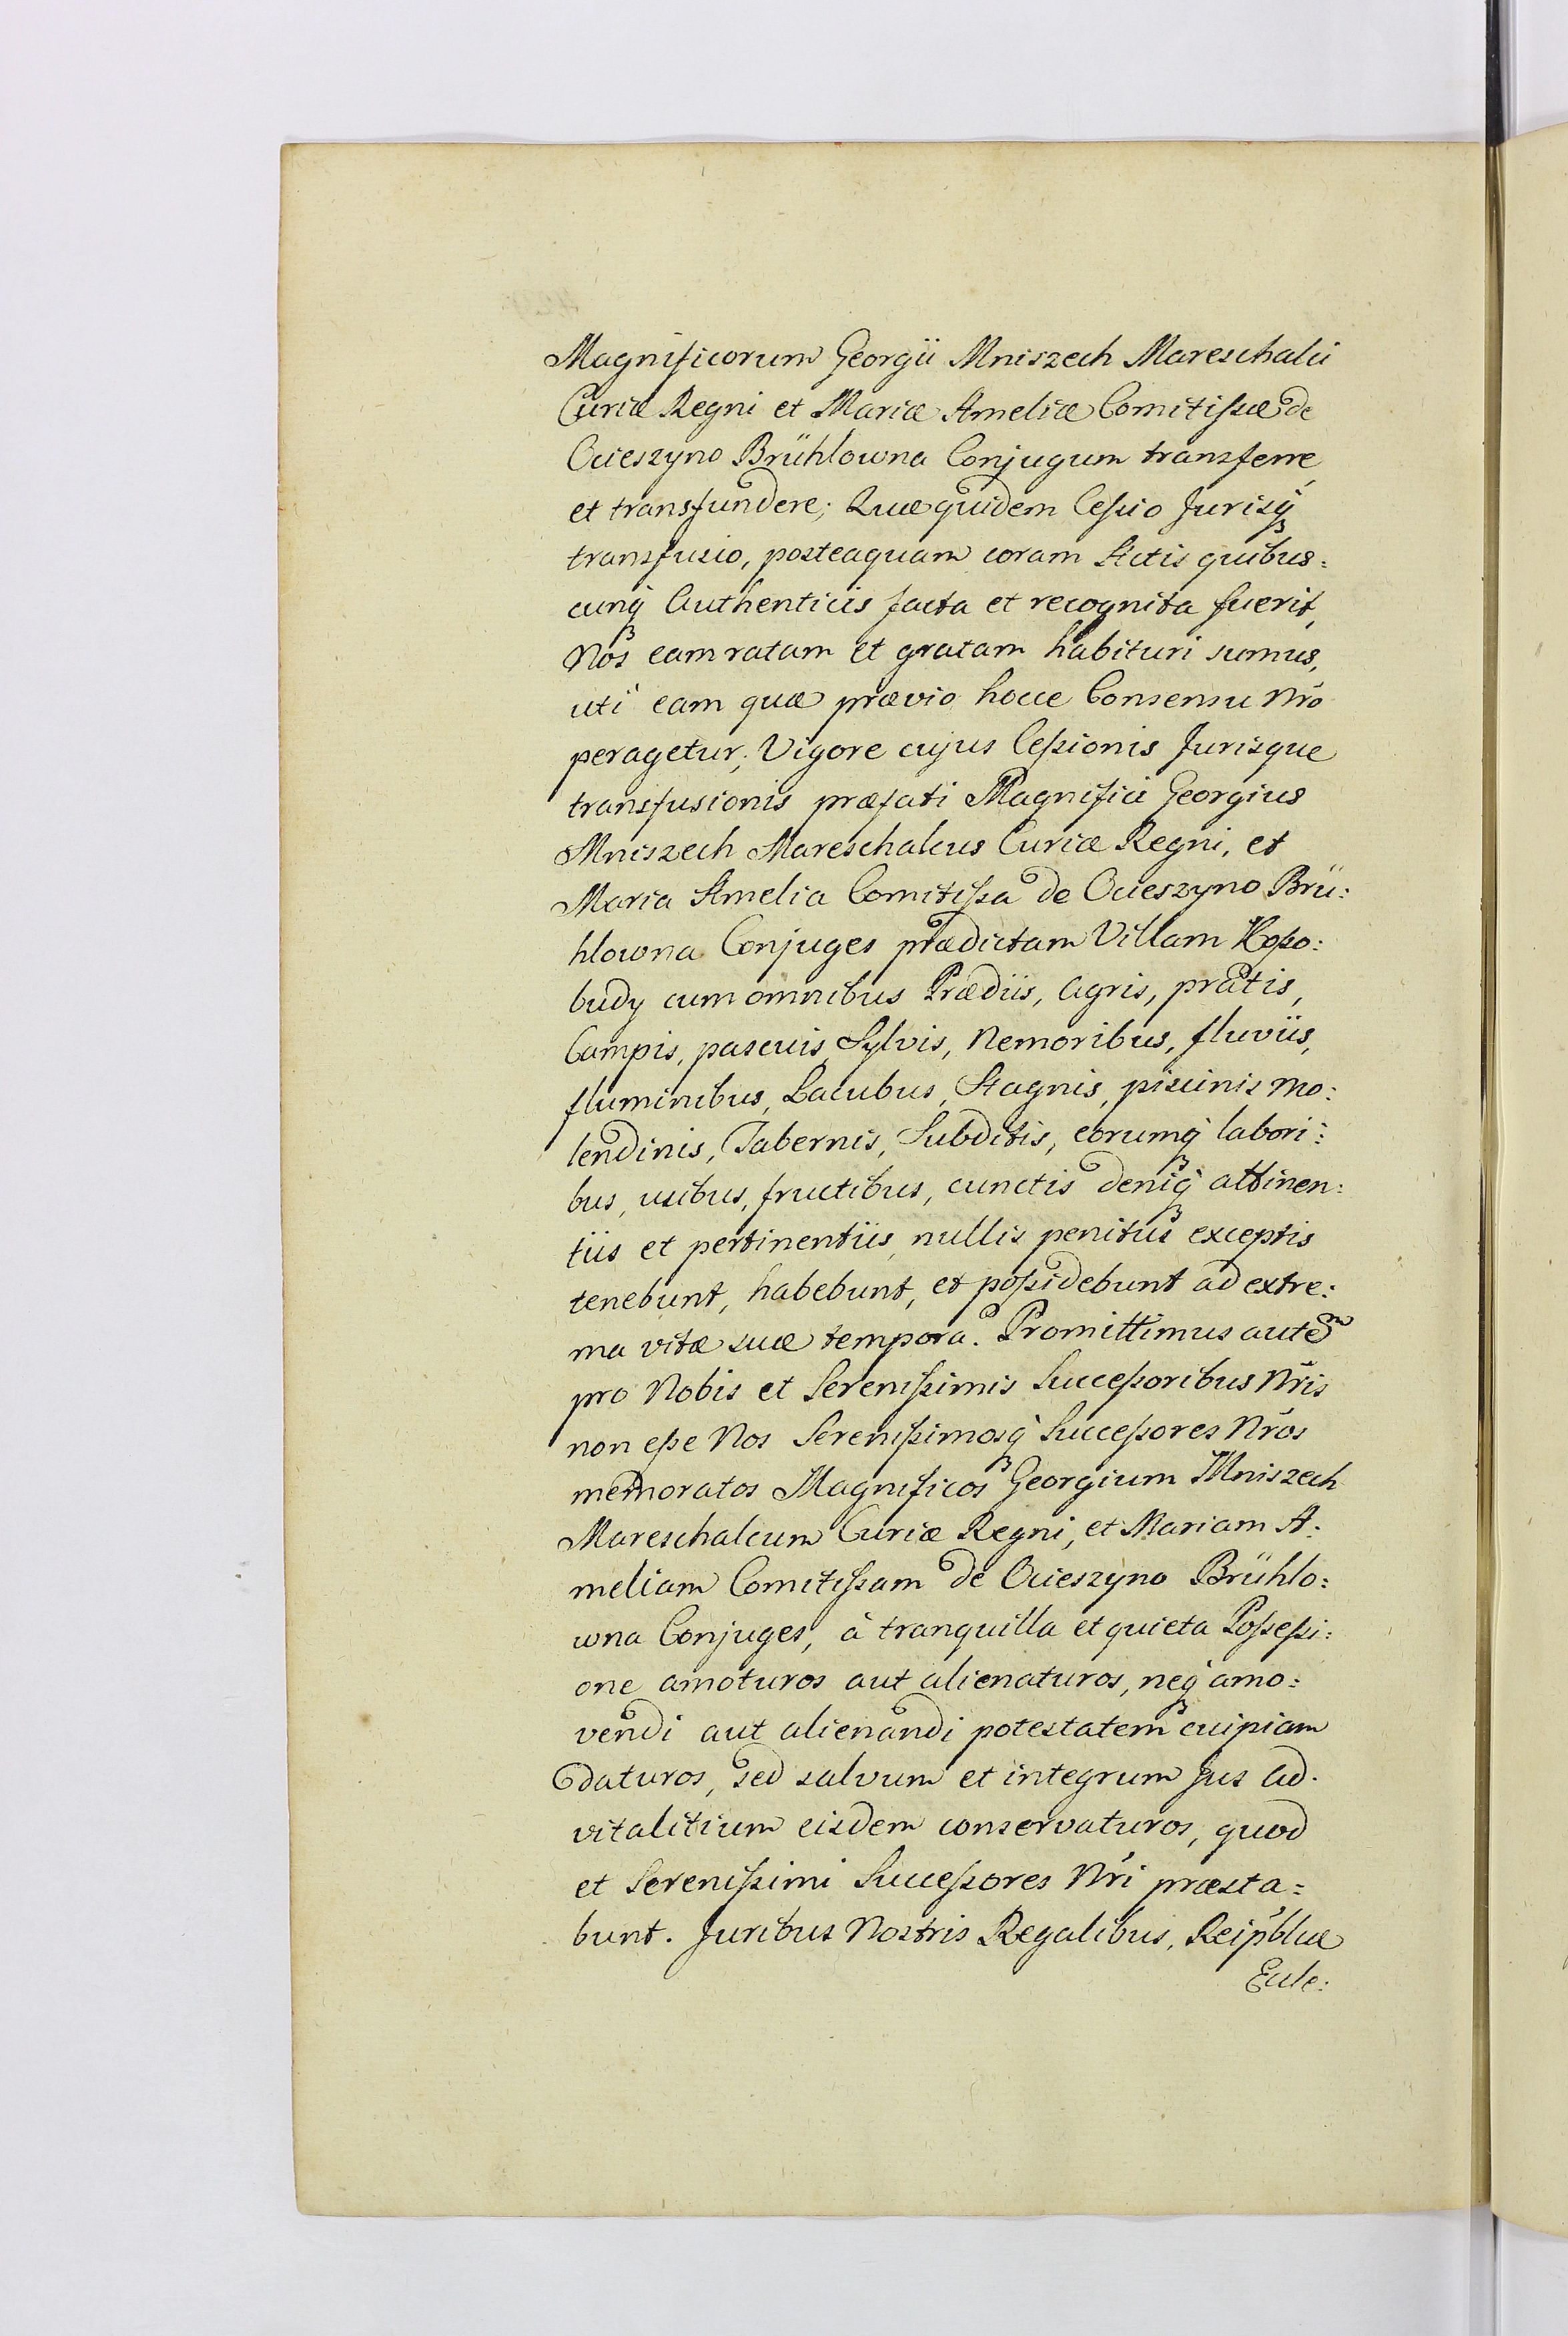 Magnificorum Georgii Mniszech Mareschalci
Curiæ Regni et Mariæ Ameliæ Comitißæ de
Ocieszyno Brühlowna Conjugum transferre
et transfundere; Quæ quidem Ceßio Jurisq́ꝫ
transfusio, posteaquam coram Actis quibus:
cunq́ꝫ Authenticis facta et recognita fuerit,
Nos eam ratam et gratam habituri sumus,
uti eam quæ prævio hocce Consensu Nr̃o
peragetur; Vigore cujus Ceßionis Jurisque
transfusionis præfati Magnifici Georgius
Mniszech Mareschalcus Curiæ Regni, et
Maria Amelia Comitißa de Ocieszyno Brü:
hlowna Conjuges prædictam Villam Kopo:
budy cum omnibus Prædiis, Agris, pratis,
Campis, pascuis, Sylvis, Nemoribus, fluviis,
fluminibus, Lacubus, Stagnis, piscinis mo:
lendinis, Tabernis, Subditis, eorumq́ꝫ labori:
bus, usibus, fructibus, cunctis deniq́ꝫ attinen:
tiis et pertinentiis, nullis penitus exceptis
tenebunt, habebunt, et poßidebunt ad extre:
ma vitæ suæ tempora. Promittimus autem
pro Nobis et Serenißimis Succeßoribus Nr̃is
non eße Nos Serenißimosq́ꝫ Succeßores Nr̃os
memoratos Magnificos Georgium Mniszech
Mareschalcum Curiæ Regni, et Mariam A:
meliam Comitißam de Ocieszyno Brühlo:
wna Conjuges, à tranquilla et quieta Poßeßi:
one amoturos aut alienaturos, neq́ꝫ amo:
vendi aut alienandi potestatem cuipiam
daturos, sed salvum et integrum Jus ad.
vitalitium eisdem conservaturos, quod
et Serenißimi Succeßores Nr̃i præsta:
bunt. Juribus Nostris Regalibus, Reip̃blicæ
Eccle: